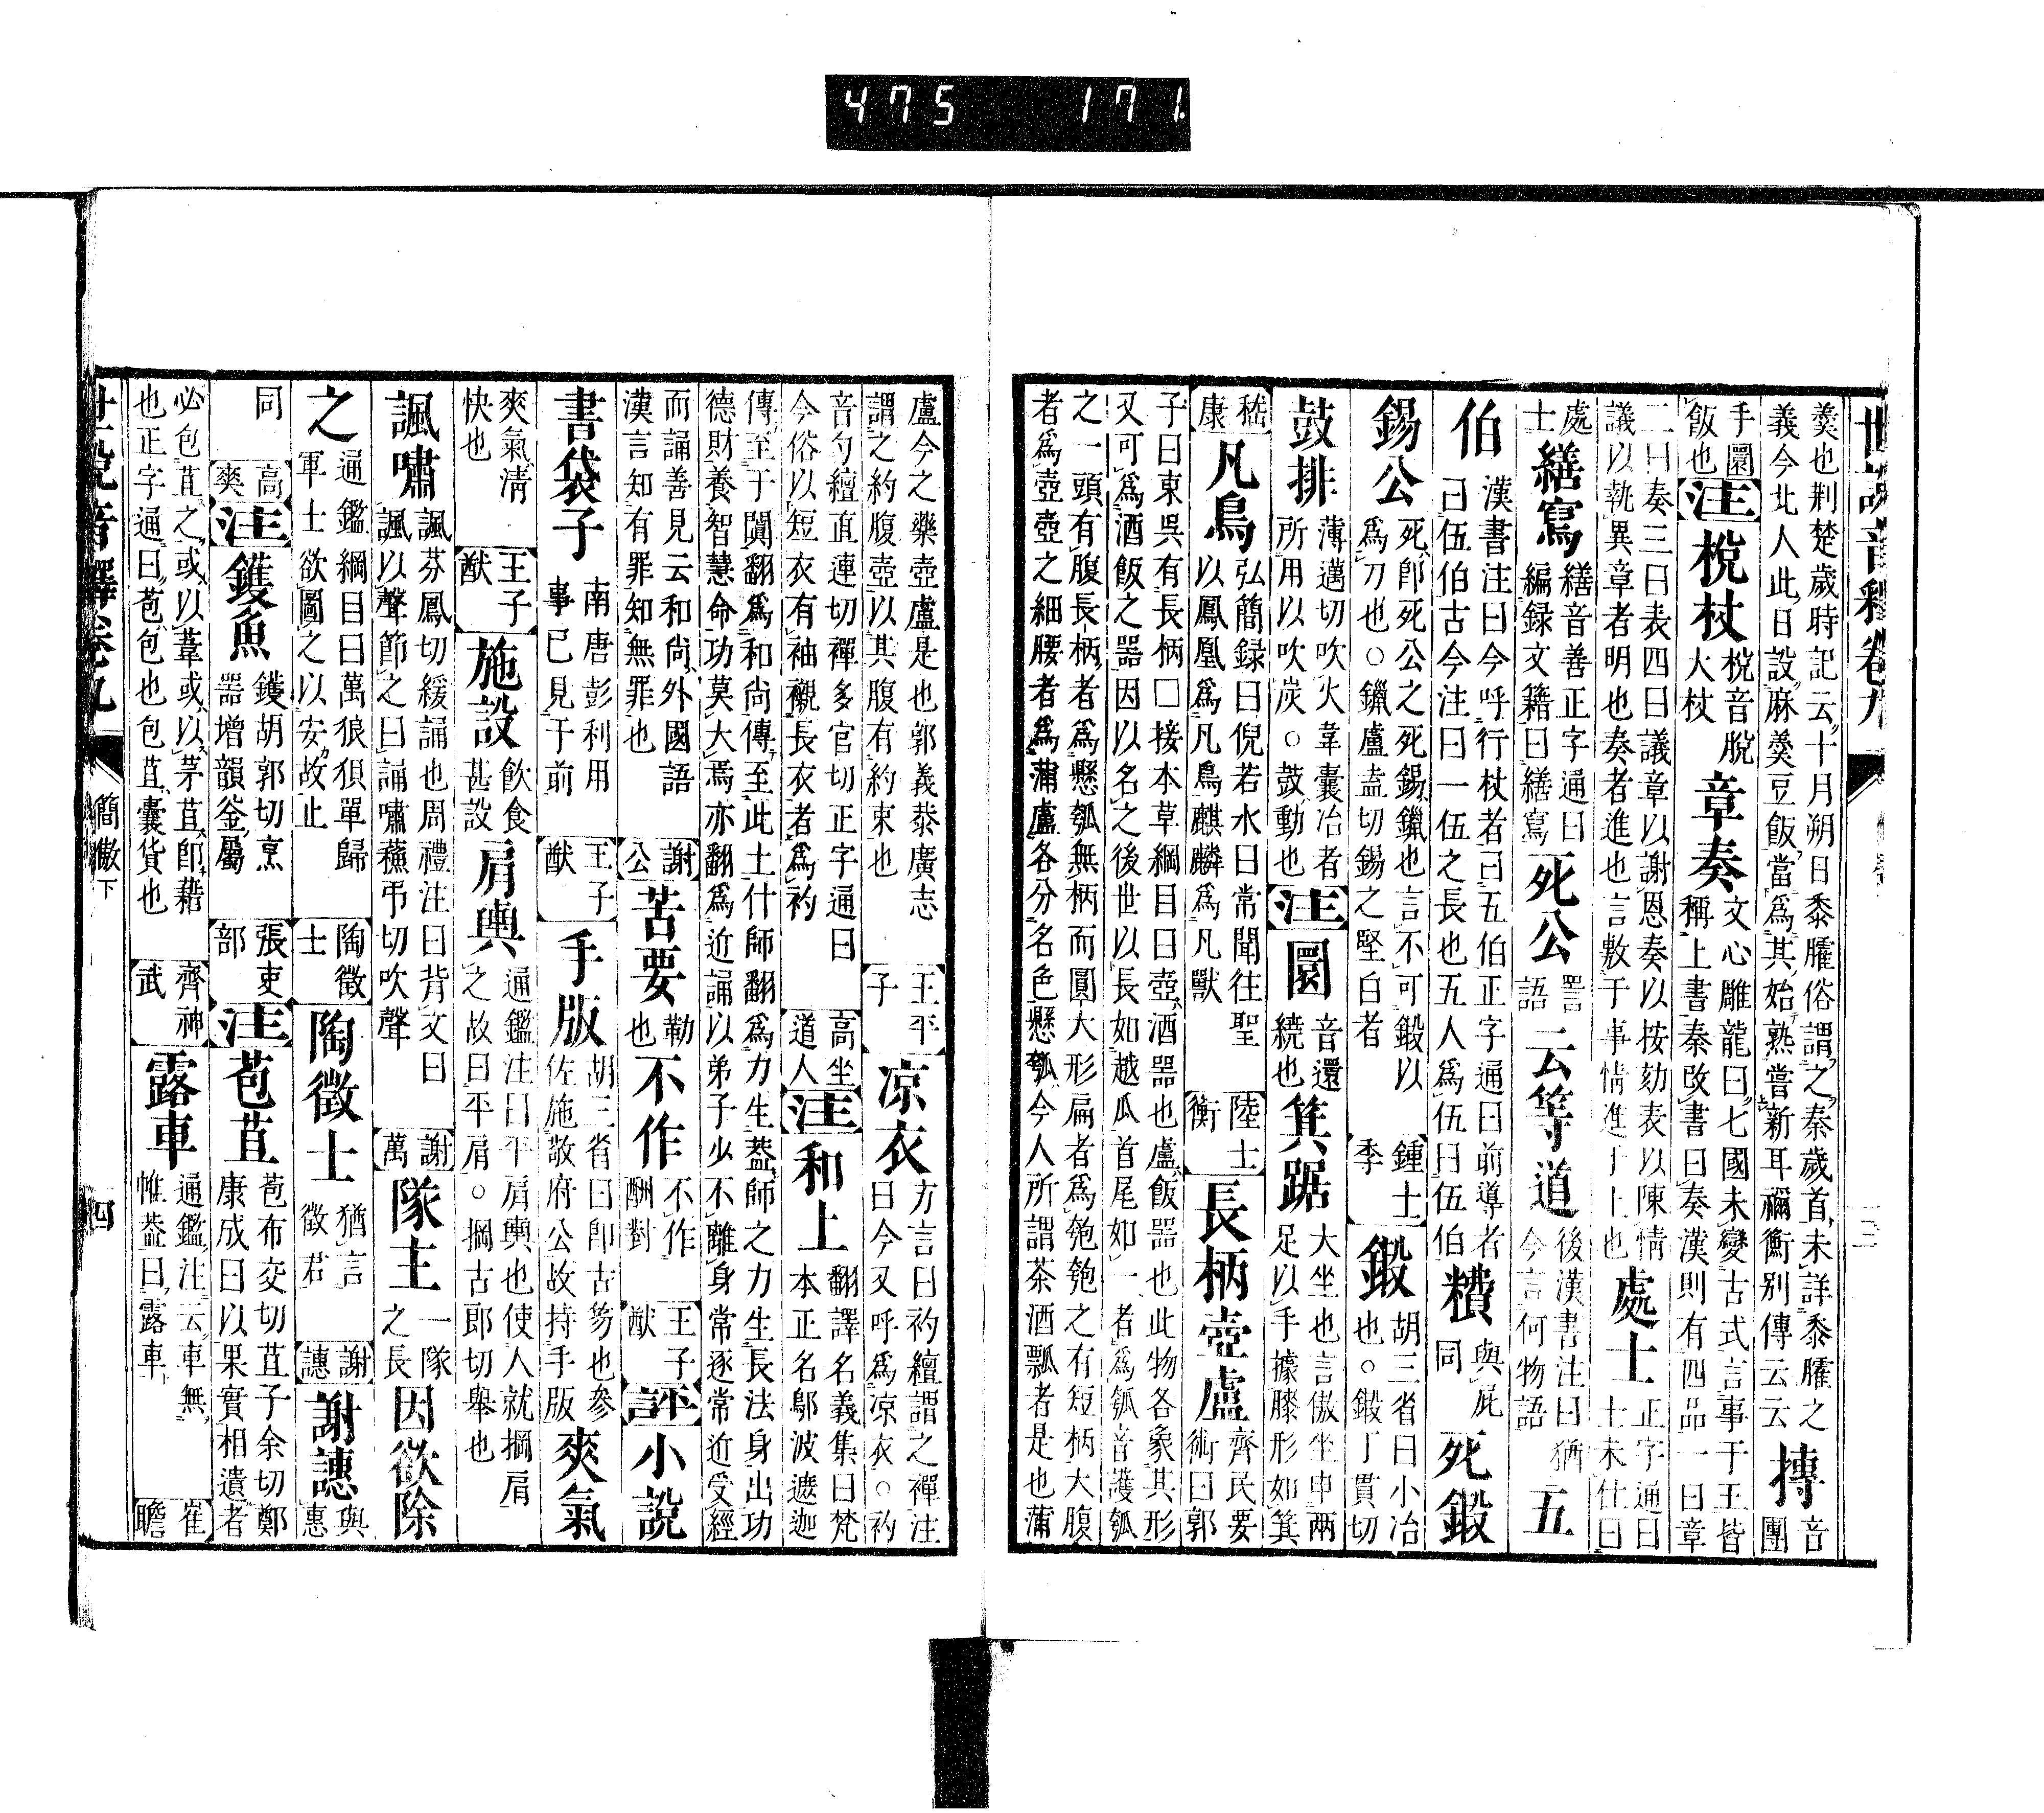 475 171.
世說音釋卷九 三
羹也荆楚歲時記云十月朔日黍臛俗謂之秦歲首未詳黍臛之義今北人此日設麻羹豆飯當爲其始熟嘗新耳禰衡别傳云云 摶 音團
手圜飯也 注 梲杖 梲音脫大杖 章奏 文心雕龍曰七國未變古式言事于王皆稱上書秦改書曰奏漢則有四品一曰章
二曰奏三曰表四曰議章以謝恩奏以按劾表以陳情議以執異章者明也奏者進也言敷于事情進于上也 處士 正字通曰士未仕曰
處士 繕寫 繕音善正字通曰編録文籍曰繕寫 死公 詈言語 云等道 後漢書注曰猶今言何物語 五
伯 漢書注曰今呼行杖者曰五伯正字通曰前導者己伍伯古今注曰一伍之長也五人爲伍曰伍伯 與屁同 死鍛
錫公 死卽死公之死錫鑞也言不可鍛以爲刀也○鑞盧盍切錫之堅白者 鍾士季 鍛 胡三省曰小冶也○鍛丁貫切
鼓排 薄邁切吹火韋囊冶者所用以吹炭○鼓動也 注 圜 音還繞也 箕踞 大坐也言傲坐申兩足以手據膝形如箕
嵇康 凡鳥 弘簡録曰倪若水曰常聞往聖以鳳凰爲凡鳥麒麟爲凡獸 陸士衡 長柄壺盧 齊民要術曰郭
子曰東吳有長柄□接本草綱目曰壺酒器也盧飯器也此物各象其形又可爲酒飯之器因以名之後世以長如越瓜首尾如一者爲瓠音護瓠
之一頭有腹長柄者爲懸瓠無柄而圓大形扁者爲匏匏之有短柄大腹者爲壺壺之細腰者爲蒲盧各分名色懸瓠今人所謂茶酒瓢者是也蒲
盧今之藥壺盧是也郭義恭廣志謂之約腹壺以其腹有約束也 王平子 凉衣 方言曰袀繵謂之襌注曰今又呼爲凉衣○袀
音勻繵直連切襌多官切正字通曰今俗以短衣有袖襯長衣者爲袀 高坐道人 注 和上 翻譯名義集曰梵本正名鄔波遮迦
傳至于闐翻爲和尚傳至此土什師翻爲力生葢師之力生長法身出功德財養智慧命功莫大焉亦翻爲近誦以弟子少不離身常逐常近受經
而誦善見云和尚外國語漢言知有罪知無罪也 謝公 苦要 勒也 不作 不作酬對 王子猷 評 小說
書袋子 南唐彭利用事已見于前 王子猷 手版 胡三省曰卽古笏也參佐施敬府公故持手版 爽氣
爽氣淸快也 王子猷 施設 飮食甚設 肩輿 通鑑注曰平肩輿也使人就摃肩之故曰平肩○摃古郎切舉也
諷嘯 諷芬鳳切緩誦也周禮注曰背文曰諷以聲節之曰誦嘯蘓弔切吹聲 謝萬 隊主 一隊之長 因欲除
之 通鑑綱目曰萬狼狽單歸軍士欲圖之以安故止 陶徵士 陶徵士 猶言徵君 謝譓 謝譓 與惠
同 高爽 注 鑊魚 鑊胡郭切烹器增韻釜屬 張吏部 注 苞苴 苞布交切苴子余切鄭康成曰以果實相遺者
必包苴之或以葦或以茅苴卽藉也正字通曰苞包也包苴囊貨也 齊神武 露車 通鑑注云車無帷葢曰露車 崔瞻
世說音釋卷九 簡傲下 四